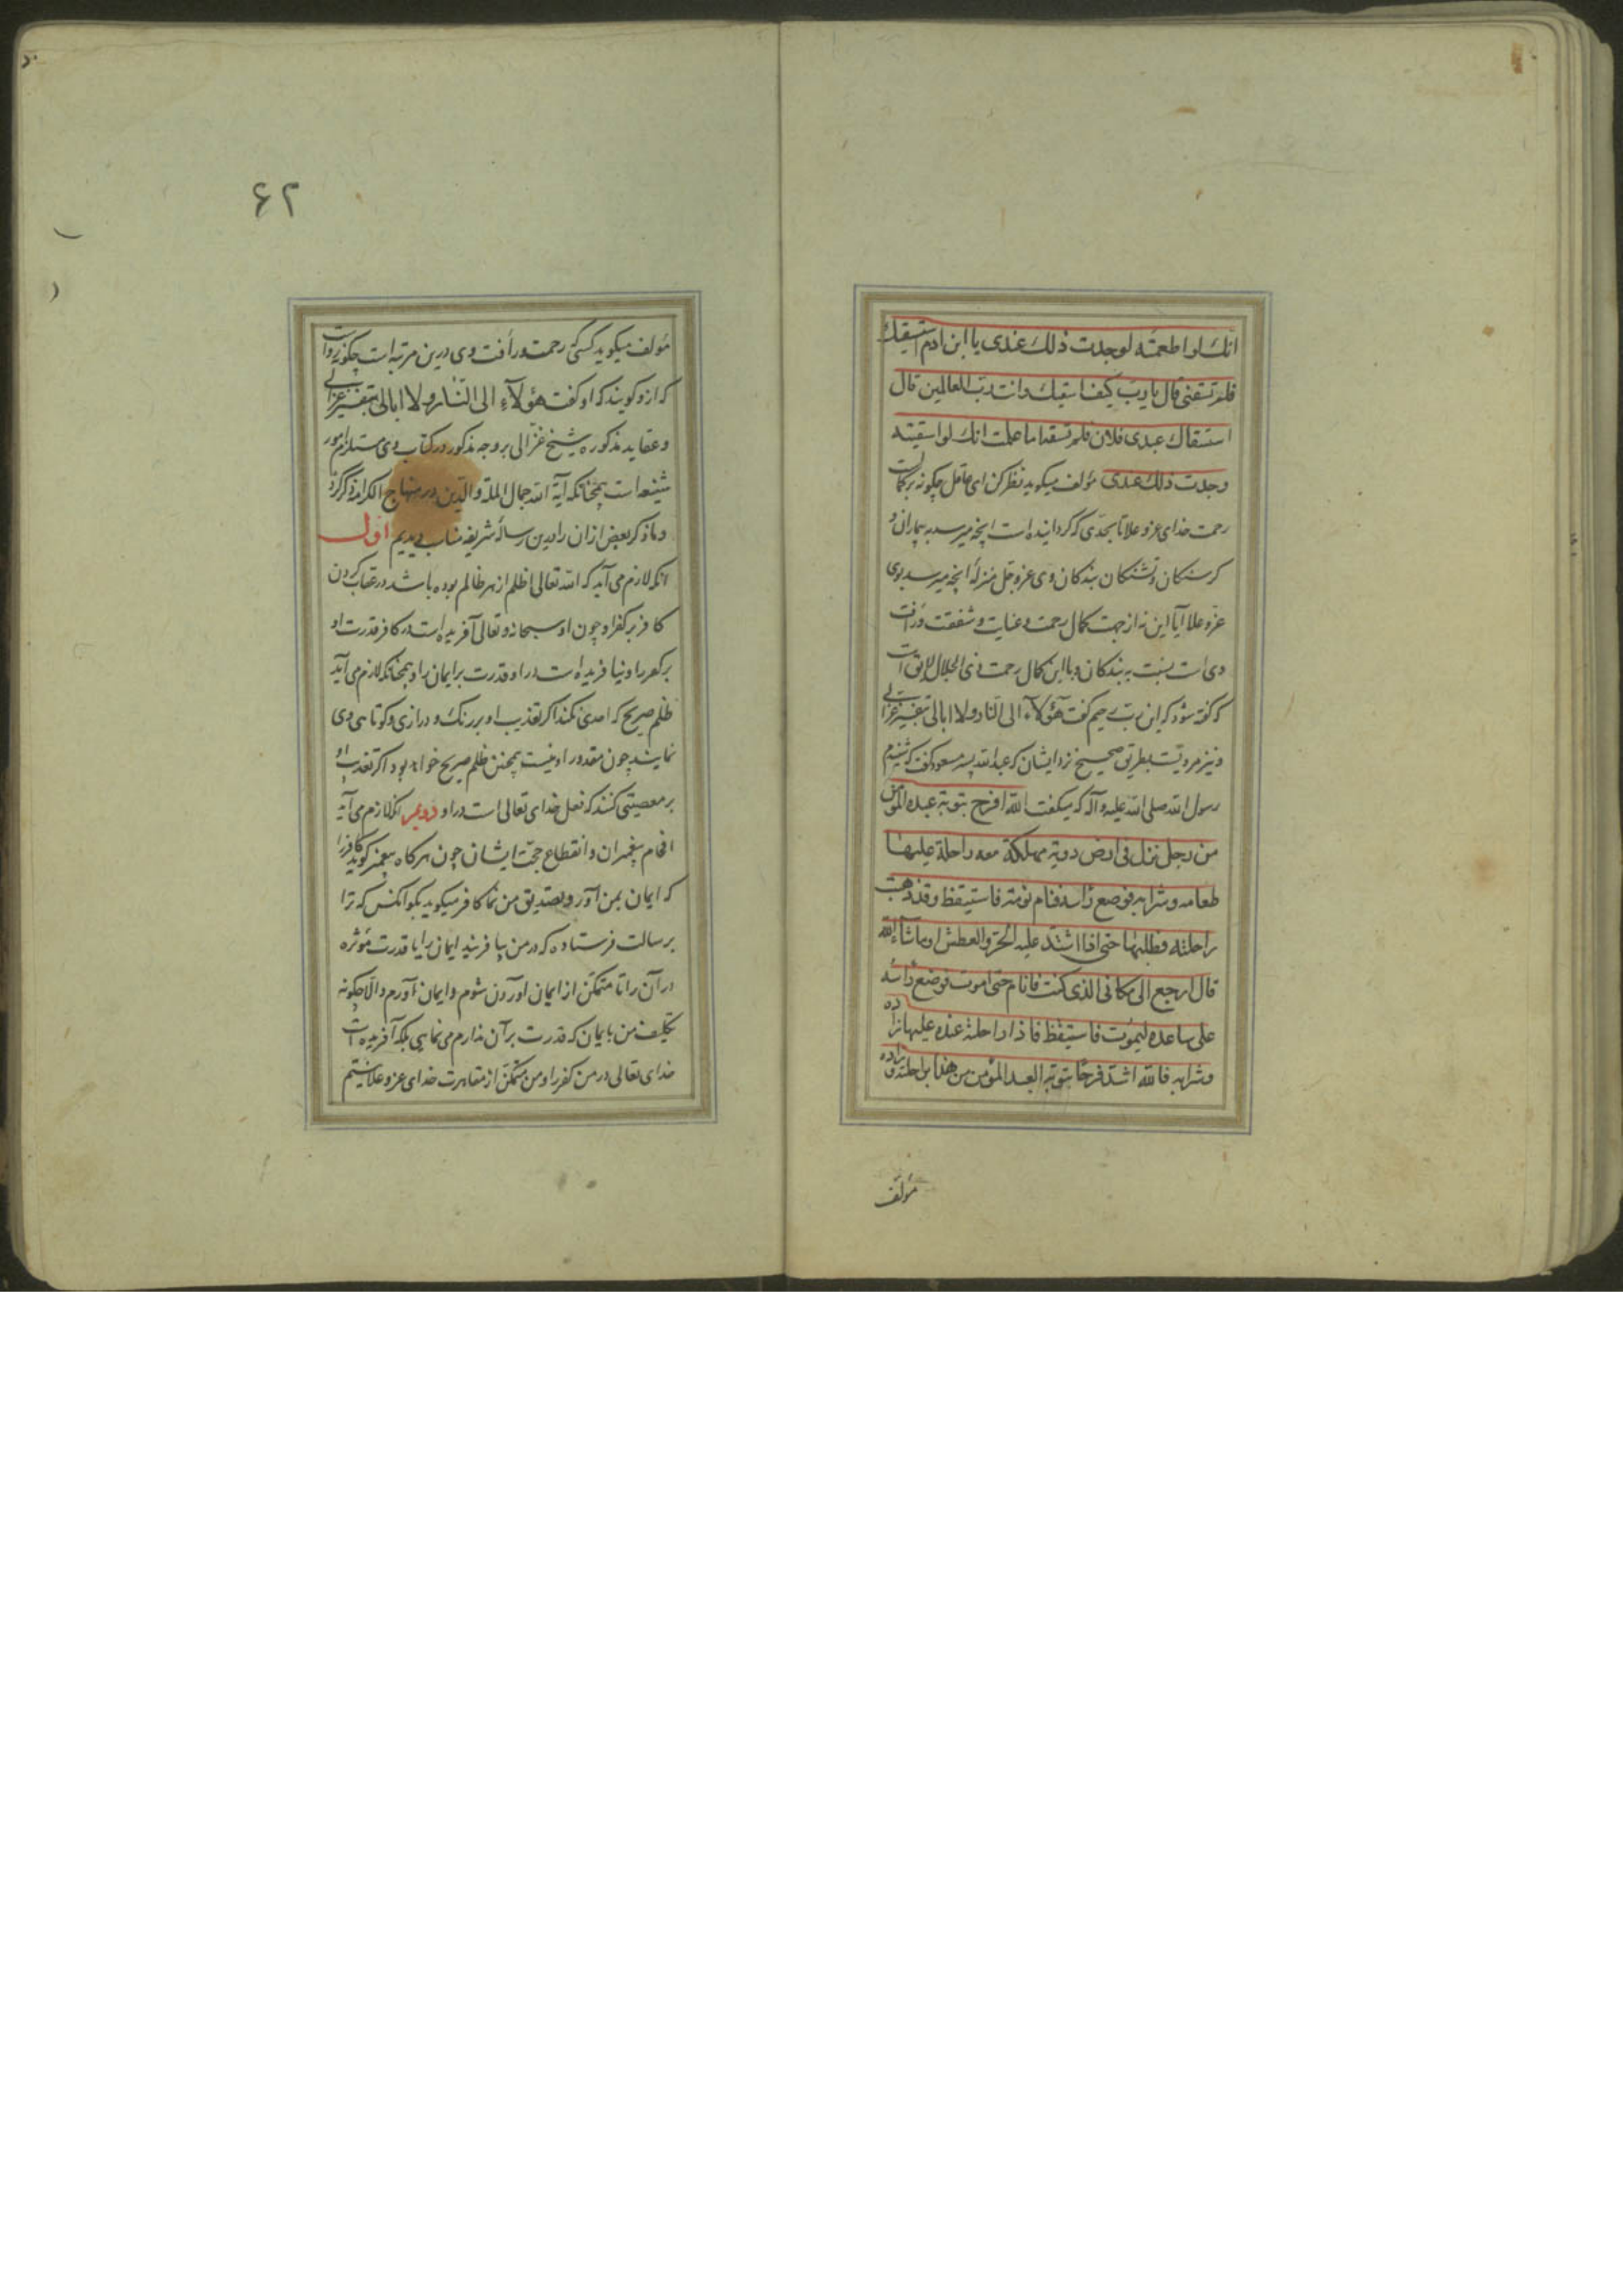 انك لو اطعمته لوجدت ذلك عندی یا ابن ادم استسقیتك
فلم تسقنی قال یا رب کیف اسقیك وانت رب العالمین قال
استسقاك عبدی فلان فلم تسقه اما علمت انك لو اسقیته
وجدت ذلك عندی مؤلف میکوید نظر کن ای عاقل چکونه برکمالست
رحمت خدای عز و علا تا بحدی که کردانیده است انچه میرسد به بیماران و
کرسنکان و تشنکان بندکان وی عز و جل منزلهٔ انچه میرسد بوی
عز و علا آیا این نه از جهت کمال رحمت و عنایت و شفقت و رأفت
وی است نسبت به بندکان و با این کمال رحمت ذی الجلال لایق است
که کفته شود که این رب رحیم کفت هؤلآء الی النار ولا ابالی بتفسیر غزالی
و نیز مرویست بطریق صحیح نزد ایشان که عبدالله پسر مسعود کفت که شنیدم
رسول الله صلی الله علیه و آله که میکفت الله افرح بتوبة عبده المؤمن
من رجل نزل فی ارض دویة مهلکة معه راحلة علیها
طعامه وشرابه فوضع رأسه فنام نومة فاستیقظ وقد ذهبت
راحلته فطلبها حتی اذا اشتد علیه الحر والعطش او ما شاء الله
قال ارجع الی مکانی الذی کنت فانام حتی اموت فوضع رأسه
علی ساعده لیموت فاستیقظ فاذا راحلته عنده علیها زاده
وشرابه فالله اشد فرحا بتوبة العبد المؤمن من هذا براحلته وزاده
مؤلف
۶۲
مؤلف میکوید کسی که رحمت و رأفت وی درین مرتبه است چکونه رواست
که ازو کویند که او کفت هؤلآء الی النار ولا ابالی بتفسیر غزالی
و عقاید مذکوره شیخ غزالی بر وجه مذکور در کتاب وی مستلزم امور
شنیعه است همچنانکه آیة الله جمال الملة والدین در منهاج الکرامه ذکر کرده
و ما ذکر بعض ازان را درین رسالهٔ شریفه مناسب دیدیم اول
انکه لازم می آید که الله تعالی اظلم از هر ظالم بوده باشد در عقاب کردن
کافر بر کفر او چون او سبحانه و تعالی آفریده است در کافر قدرت او
بر کفر را و نیافریده است در او قدرت بر ایمان را و همچنانکه لازم می آید
ظلم صریح که احدی نکند اکر تعذیب او بر رنك و درازی و کوتاهی وی
نمایند چون مقدور او نیست همچنین ظلم صریح خواهد بود اکر تعذیب او
بر معصیتی کنند که فعل خدای تعالی است در او دویم انکه لازم می آید
افحام پیغمبران و انقطاع حجت ایشان چون هرکاه پیغمبر کوید کافر را
که ایمان بمن آور و تصدیق من نما کافر میکوید بکو انکس که ترا
برسالت فرستاده که در من بیافریند ایمان را یا قدرت مؤثره
در آن را تا متمکن از ایمان اوردن شوم و ایمان آورم والا چکونه
تکلیف من بایمان که قدرت بر آن ندارم می نمایی بلکه آفریده است
خدای تعالی در من کفر را و من متمکن از مقاهرت خدای عز و علا نیستم